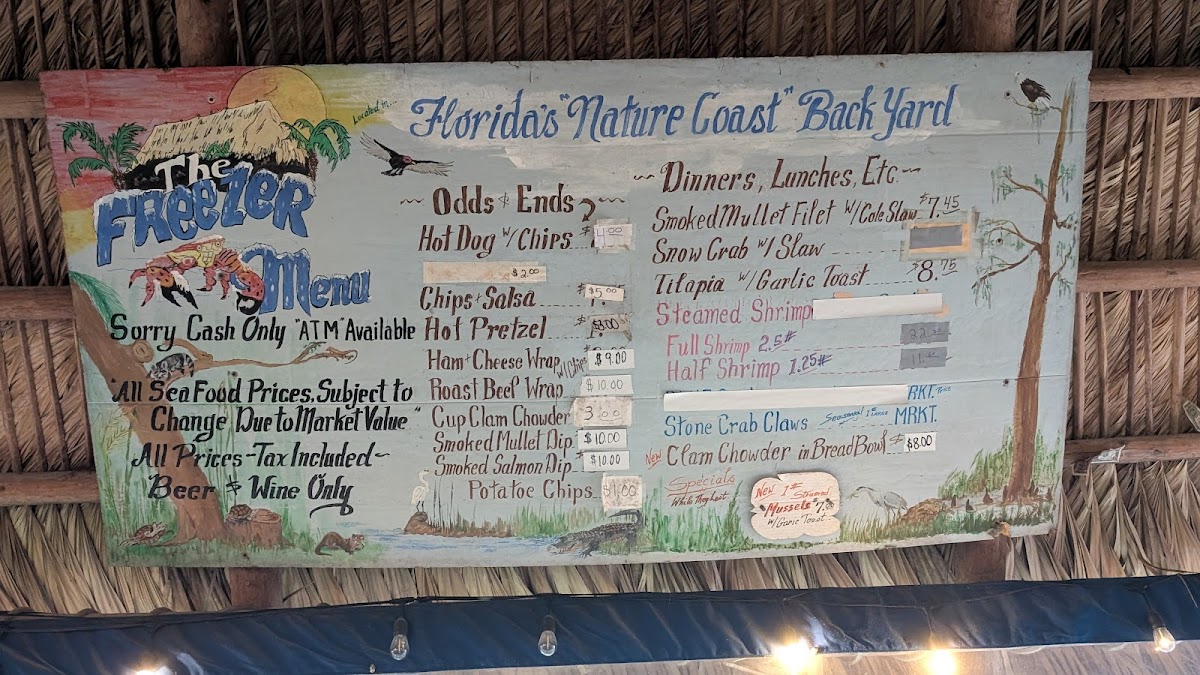 Located in...
Florida's "Nature Coast" Back Yard
The
FREEZER
Menu
Sorry Cash Only "ATM" Available
"All Sea Food Prices, Subject to
Change Due to Market Value"
All Prices - Tax Included~
Beer & Wine Only
~~ Odds & Ends
Hot Dog w/ Chips $4.00
$2.00
Chips + Salsa $5.00
Hot Pretzel $
Ham + Cheese Wrap w/ Chips $9.00
Roast Beef Wrap $10.00
Cup Clam Chowder 3.00
Smoked Mullet Dip $10.00
Smoked Salmon Dip $10.00
Potatoe Chips $1.00
~~ Dinners, Lunches, Etc. ~~
Smoked Mullet Filet w/ Cole Slaw $7.45
Snow Crab w/ Slaw
Tilapia w/ Garlic Toast $8.75
Steamed Shrimp
Full Shrimp 2.5#
Half Shrimp 1.25#
RKT.
Stone Crab Claws MRKT.
New Clam Chowder in Bread Bowl $8.00
Specials
While They Last
New 1# Steamed
Mussels $7.
w/ Garlic Toast